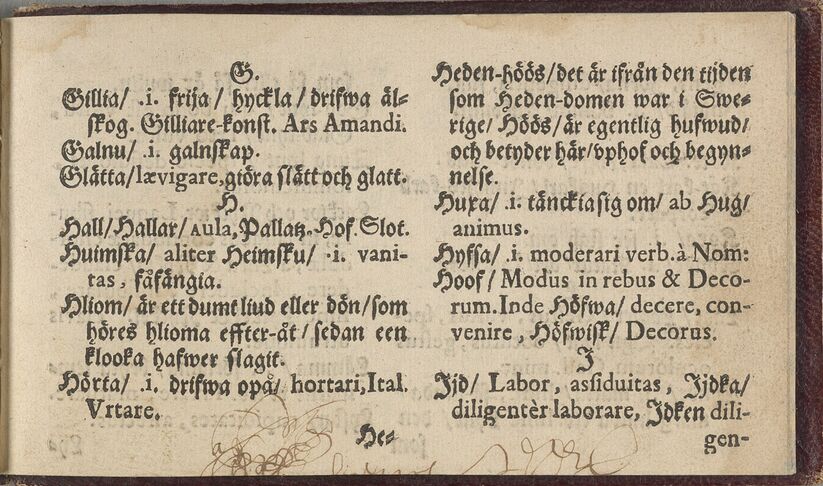 G.
Gillia/ .i. frija/ hyckla/ drifwa äl-
skog. Gilliare-konst. Ars Amandi.
Galnu/ .i. galnskap.
Glätta/lævigare,giöra slätt och glatt.
H.
Hall/Hallar/Aula,Pallatz.Hof.Slot.
Huimska/ aliter Heimsku/ .i. vani-
tas, fåfängia.
Hliom/ är ett dumt liud eller dön/som
höres hlioma effter-åt/sedan een
klooka hafwer slagit.
Hörta/ .i. drifwa opå/ hortari,Ital.
Vrtare.
He-
Heden-höös/det är ifrån den tijden
som Heden-domen war i Swe-
rige/ Höös/är egentlig hufwud/
och betyder här/vphof och begyn-
nelse.
Huxa/ .i. tänckiasig om/ ab Hug/
animus.
Hyfsa/ .i. moderari verb.à Nom:
Hoof/ Modus in rebus & Deco-
rum.Inde Höfwa/ decere, con-
venire, Höfwisk/ Decorus.
I
Ijd/ Labor, assiduitas, Ijdka/
diligentèr laborare, Idken dili-
gen-